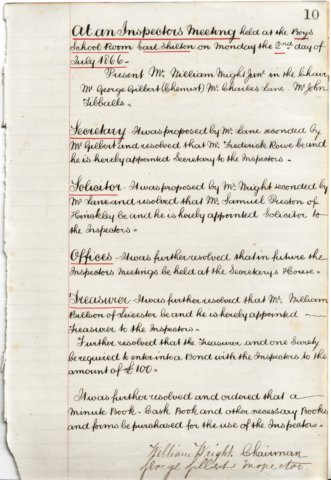 10
At an Inspectors Meeting held at the Boys
School Room Earl Shilton on Monday the 2nd day of
July 1866.
Present Mr. William Wright Junr in the Chair
Mr George Gilbert (Chemist) Mr. Charles Lane Mr John
Tilballs.
Secretary It was proposed by Mr. Lane seconded by
Mr Gilbert and resolved that Mr. Frederick Rowe be and
he is hereby appointed Secretary to the Inspectors.
Solicitor. It was proposed by Mr. Wright seconded by
Mr Lane and resolved that Mr. Samuel Preston of
Hinckley be and he is hereby appointed Solicitor to
the Inspectors.
Offices. It was further resolved that in future the
Inspectors Meetings be held at the Secretary's House.
Treasurer It was further resolved that Mr. William
Billson of Leicester be and he is hereby appointed
Treasurer to the Inspectors.
Further resolved that the Treasurer and one Surety
be required to enter into a Bond with the Inspectors to the
amount of £100.
It was further resolved and ordered that a
Minute Book. Cash Book and other necessary Books
and forms be purchased for the use of the Inspectors.
William Wright Chairman
George Gilbert Inspector